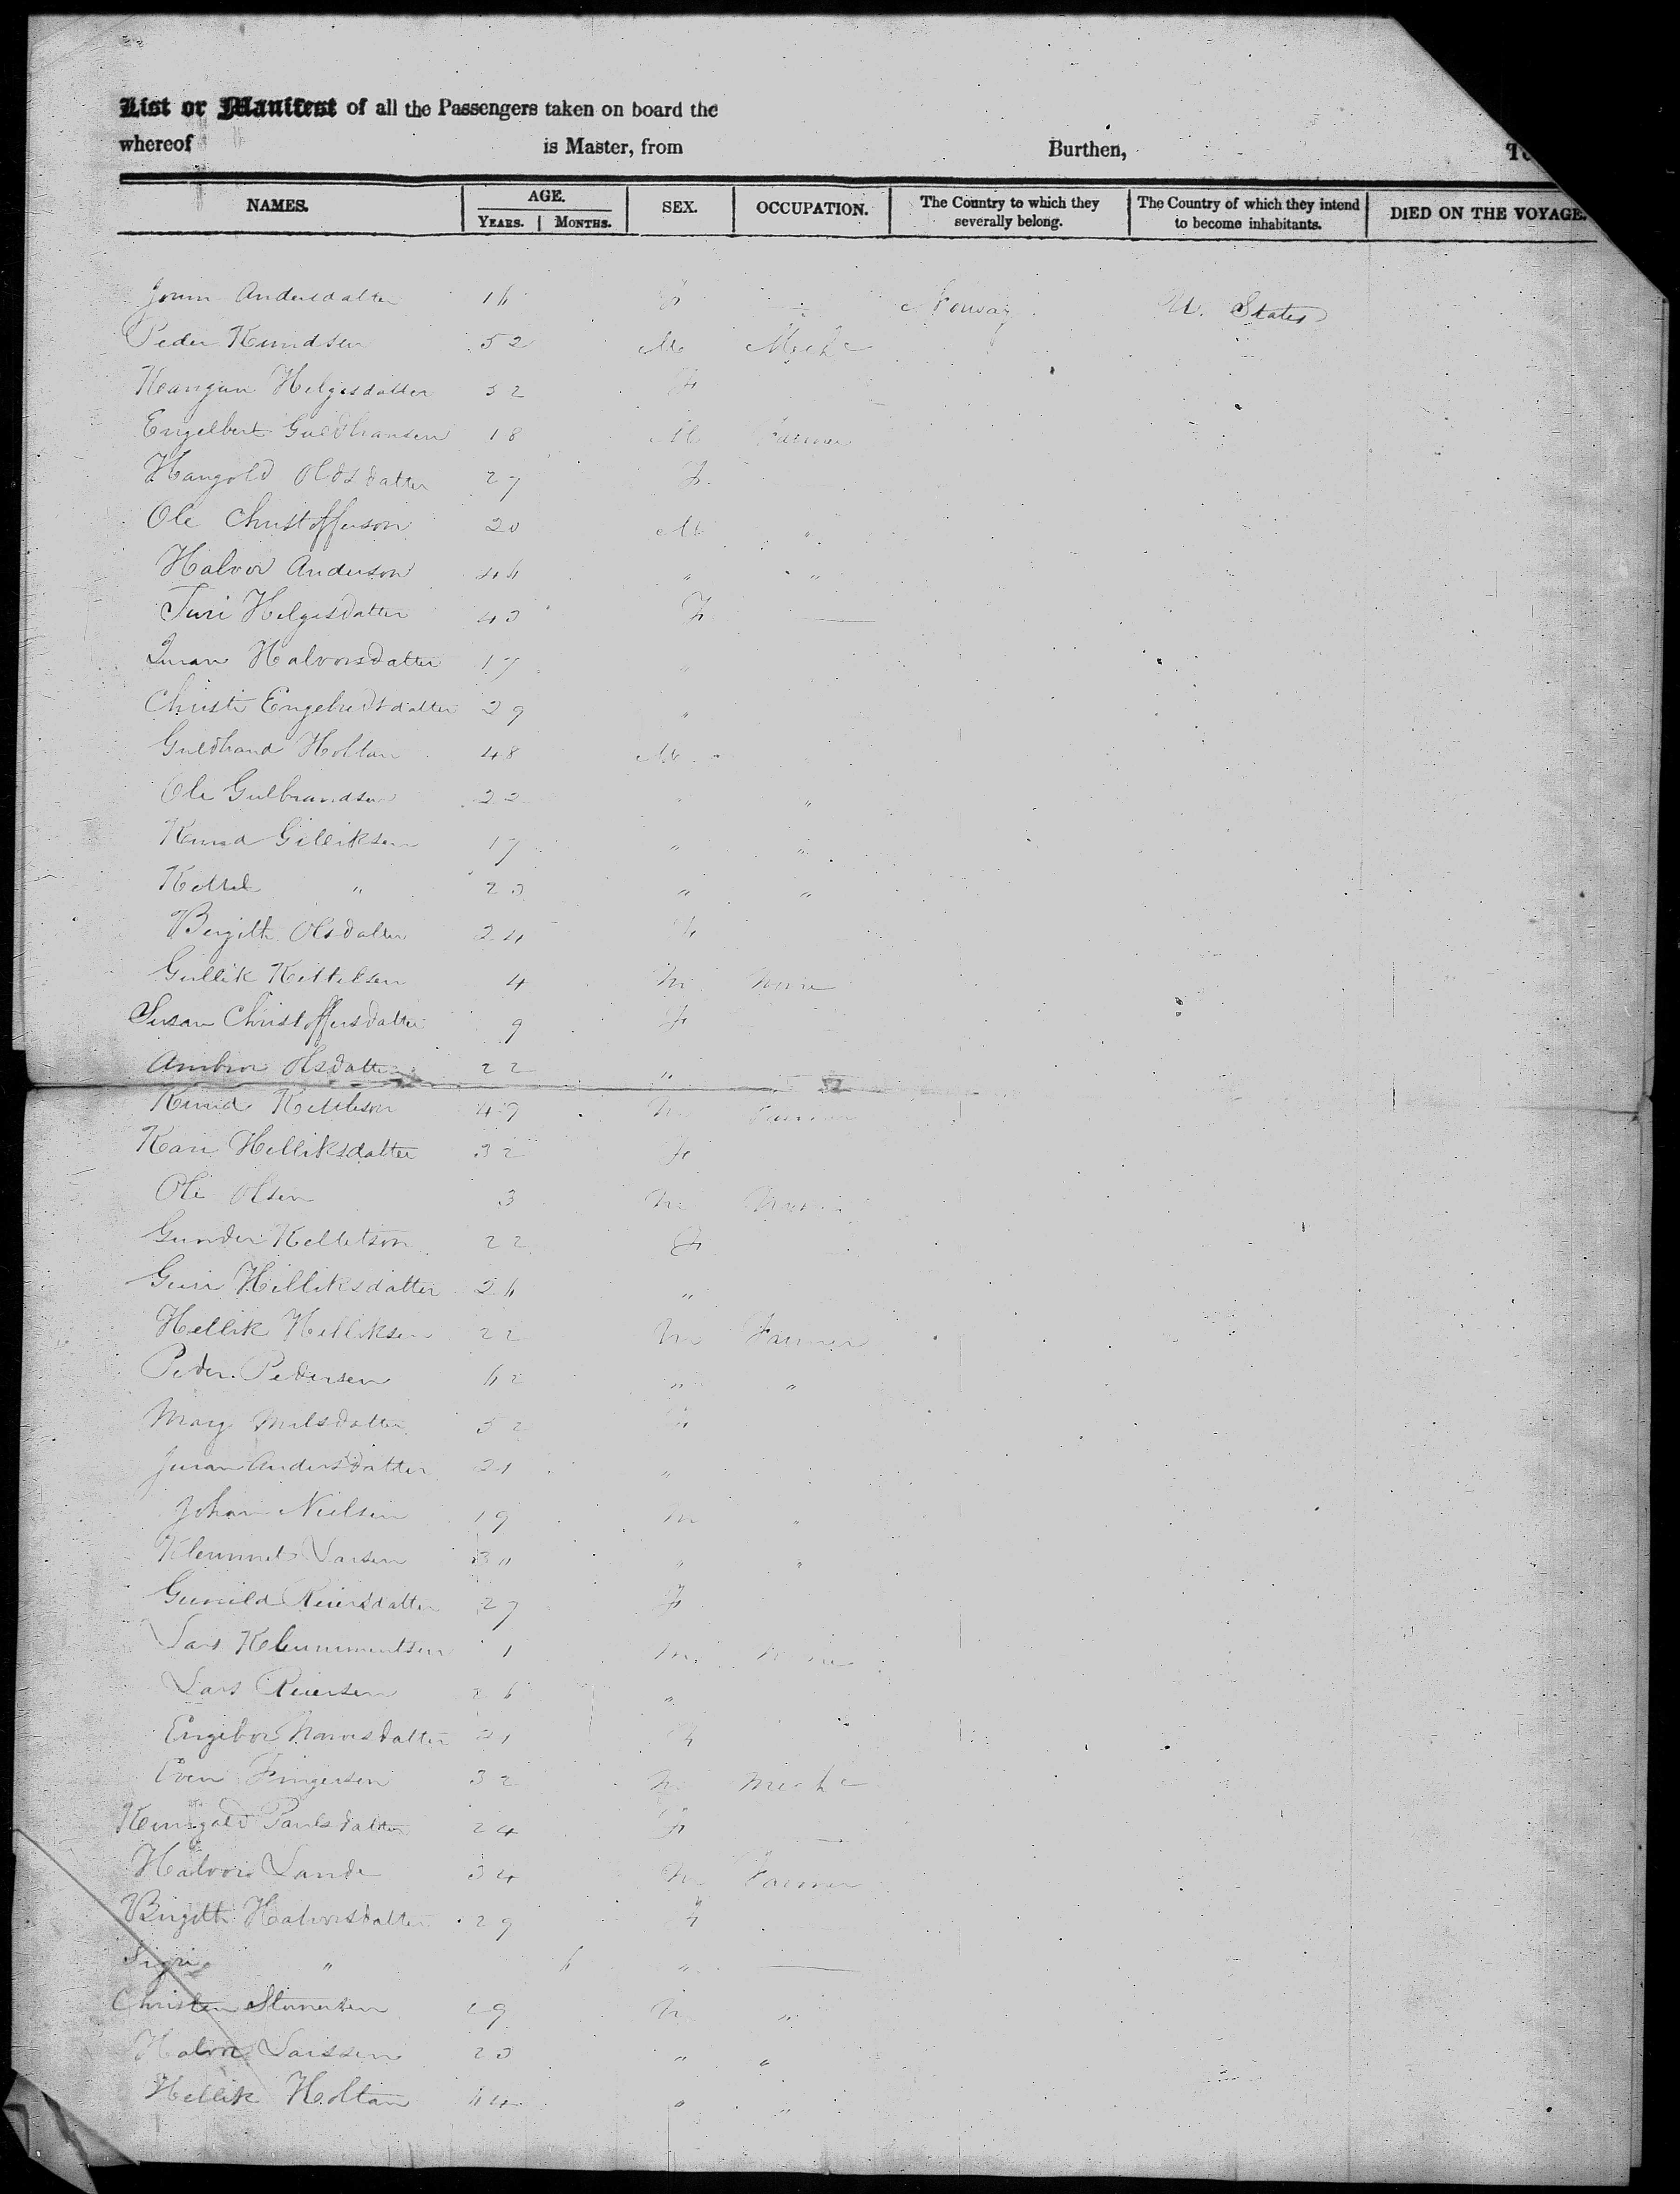 List or Manifest of all the Passengers taken on board the
whereof is Master, from Burthen,
NAMES. AGE. YEARS. MONTHS. SEX. OCCUPATION. The Country to which they severally belong. The Country of which they intend to become inhabitants. DIED ON THE VOYAGE.
Andersdatter 16 F — Norway U. States
Peder Knudsen 52 M Mechc
Helgesdatter 52 F
Engelbert Guldbransen 18 M Farmer
Olds datter 27 F
Ole Christofferson 20 M "
Halvor Anderson 46 " "
Turi Helgesdatter 43 F —
Halvorsdatter 17 "
Christi Engebredtsdatter 29 "
Guldbrand Holtan 48 M
Ole Gulbrandsen 22 " "
Knud Gulliksen 17 " "
Kettel " 23 " "
Bergith Olsdatter 24 F
Gullik Kettelsen 4 M None
Susan Christoffersdatter 9 F
Olsdatter 22 "
Knud Kettleson 49 M Farmer
Kari Helliksdatter 32 F
Ole Olsen 3 M None
Gunder Kelletson 22 F
Helliksdatter 26 "
Hellik Helliksen 22 M Farmer
Peder Pedersen 62 " "
Mary Nilsdatter 52 F
Juran Andersdatter 21 "
Johan Nielsen 19 M "
Klemmet Larsen 30 " "
Gunild Reiersdatter 27 F
Lars Klemmentsen 1 M None
Lars Reiersen 26 "
Engebor 21 F
Even Fingersen 32 M Mechc
Paulsdatter 24 F —
Halvor Lande 34 M Farmer
Birgith Halvorsdatter 29 F
Sigri " 6 " —
Christen 29 M "
Halvor Larssen 23 " "
Hellik Holtan 44 " "